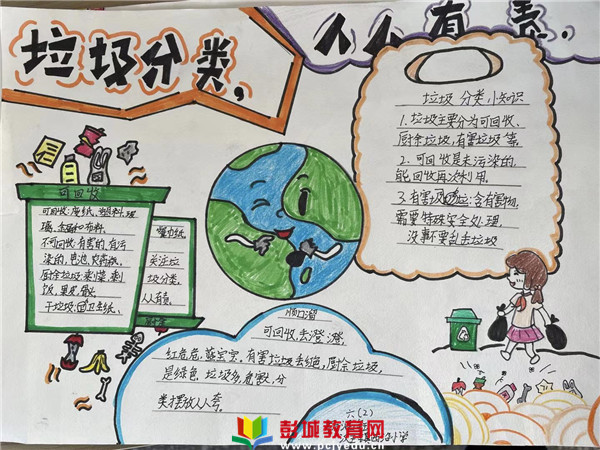 垃圾分类,
人人有责,
垃圾 分类小知识
1.垃圾主要分为可回收、
厨余垃圾,有害垃圾等。
2.可回收是未污染的,
能回收再次利用。
3.有害垃圾:含有害物,
需要特殊安全处理,
没事不要乱丢垃圾
可回收
可回收:废纸,塑料,玻
璃,金属和布料。
不可回收:有害的,有污
染的,电池,灾害瓶。
厨余垃圾:剩菜,剩
饭,果皮,骨头
干垃圾:卫生纸、
关注垃
圾分类。
人人有责
顺口溜
可回收,去澄,澄,
有害垃圾丢红色,厨余垃圾,
是绿色,垃圾
类摆放人人夸。
六(2)
小学
彭城教育网
www.pcjyedu.cn